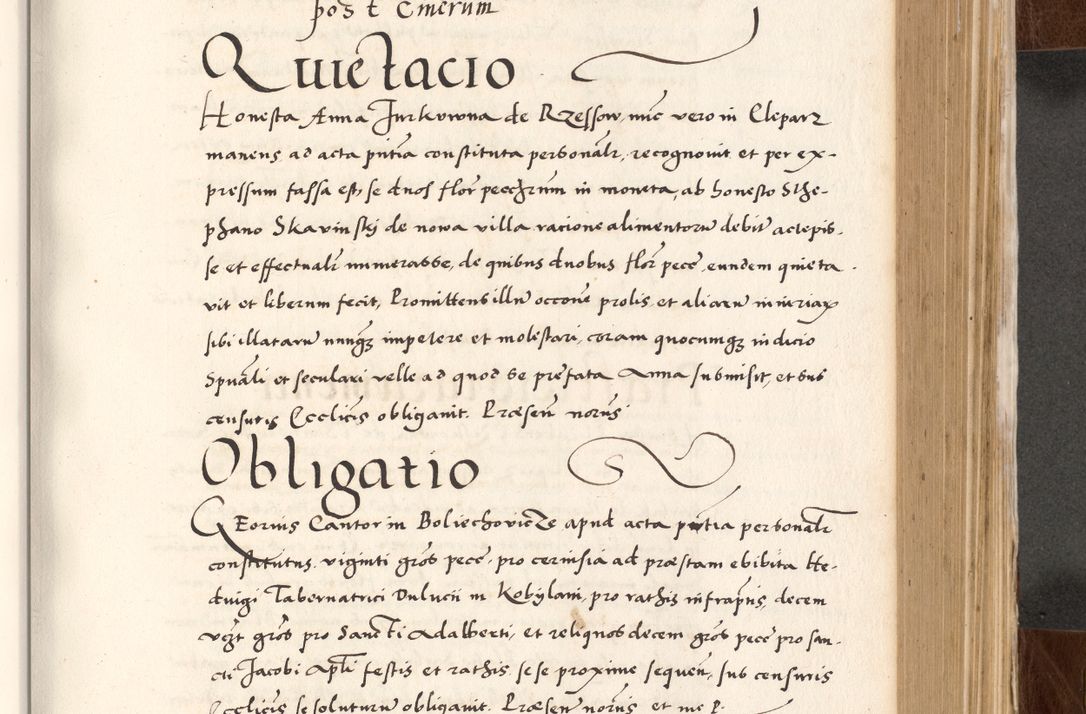 pos t Cmerum
Quietacio
Honesta Anna Jurkowna de Rzessow, nunc vero in Cleparz
manens, ad acta pntia constituta personalr, recognovit et per ex-
pressum fassa est, se duos flor pecc hrum in moneta, ab honesto Sthe-
phano Skavinskj de nowa villa racione alimentoru debit actepis-
se et effectualr numerasse, de quibus duobus flor pecc, eundem quieta
vit et liberum fecit, Promittens illu occone prolis et aliaru iniuriaru
sibi illataru nunqz impetere et molestari, coram quocumqz indicio
Spuali et seculari velle ad quod se prefata Anna submisit, et sub
censuris Ecclicis obligavit. Præsen norus
Obligatio
GEorius Cantor in Boliechovicze apud acta pntia personalr
constitutus, viginti gros pecc, pro cerinsia ad præstam ebibita He-
duigi Tabernatrici Dulucii in Kobylani, pro rathis infraptis, decem
vczt gros pro Sancti Adalberti, et reliquos decem gros pecc pro san-
cti Jacobi Apli festis et rathis sese proxime sequen, sub censuris
Ecclicis se soluturu obligavit. Præsen norus et me P.